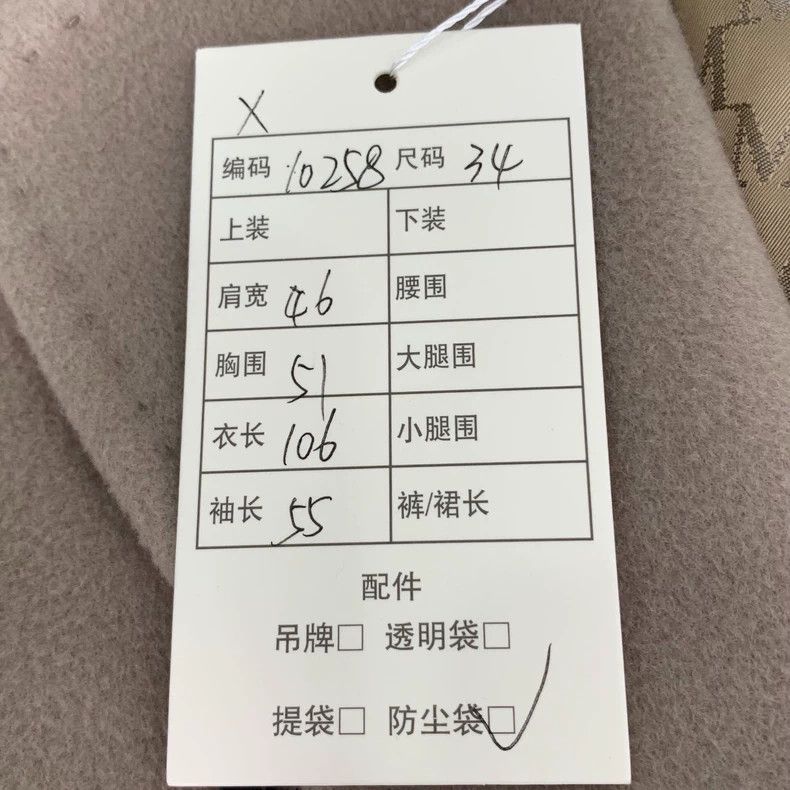 X
编码 10258 尺码 34
上装 下装
肩宽 46 腰围
胸围 51 大腿围
衣长 106 小腿围
袖长 55 裤/裙长
配件
吊牌□ 透明袋□
提袋□ 防尘袋□✓